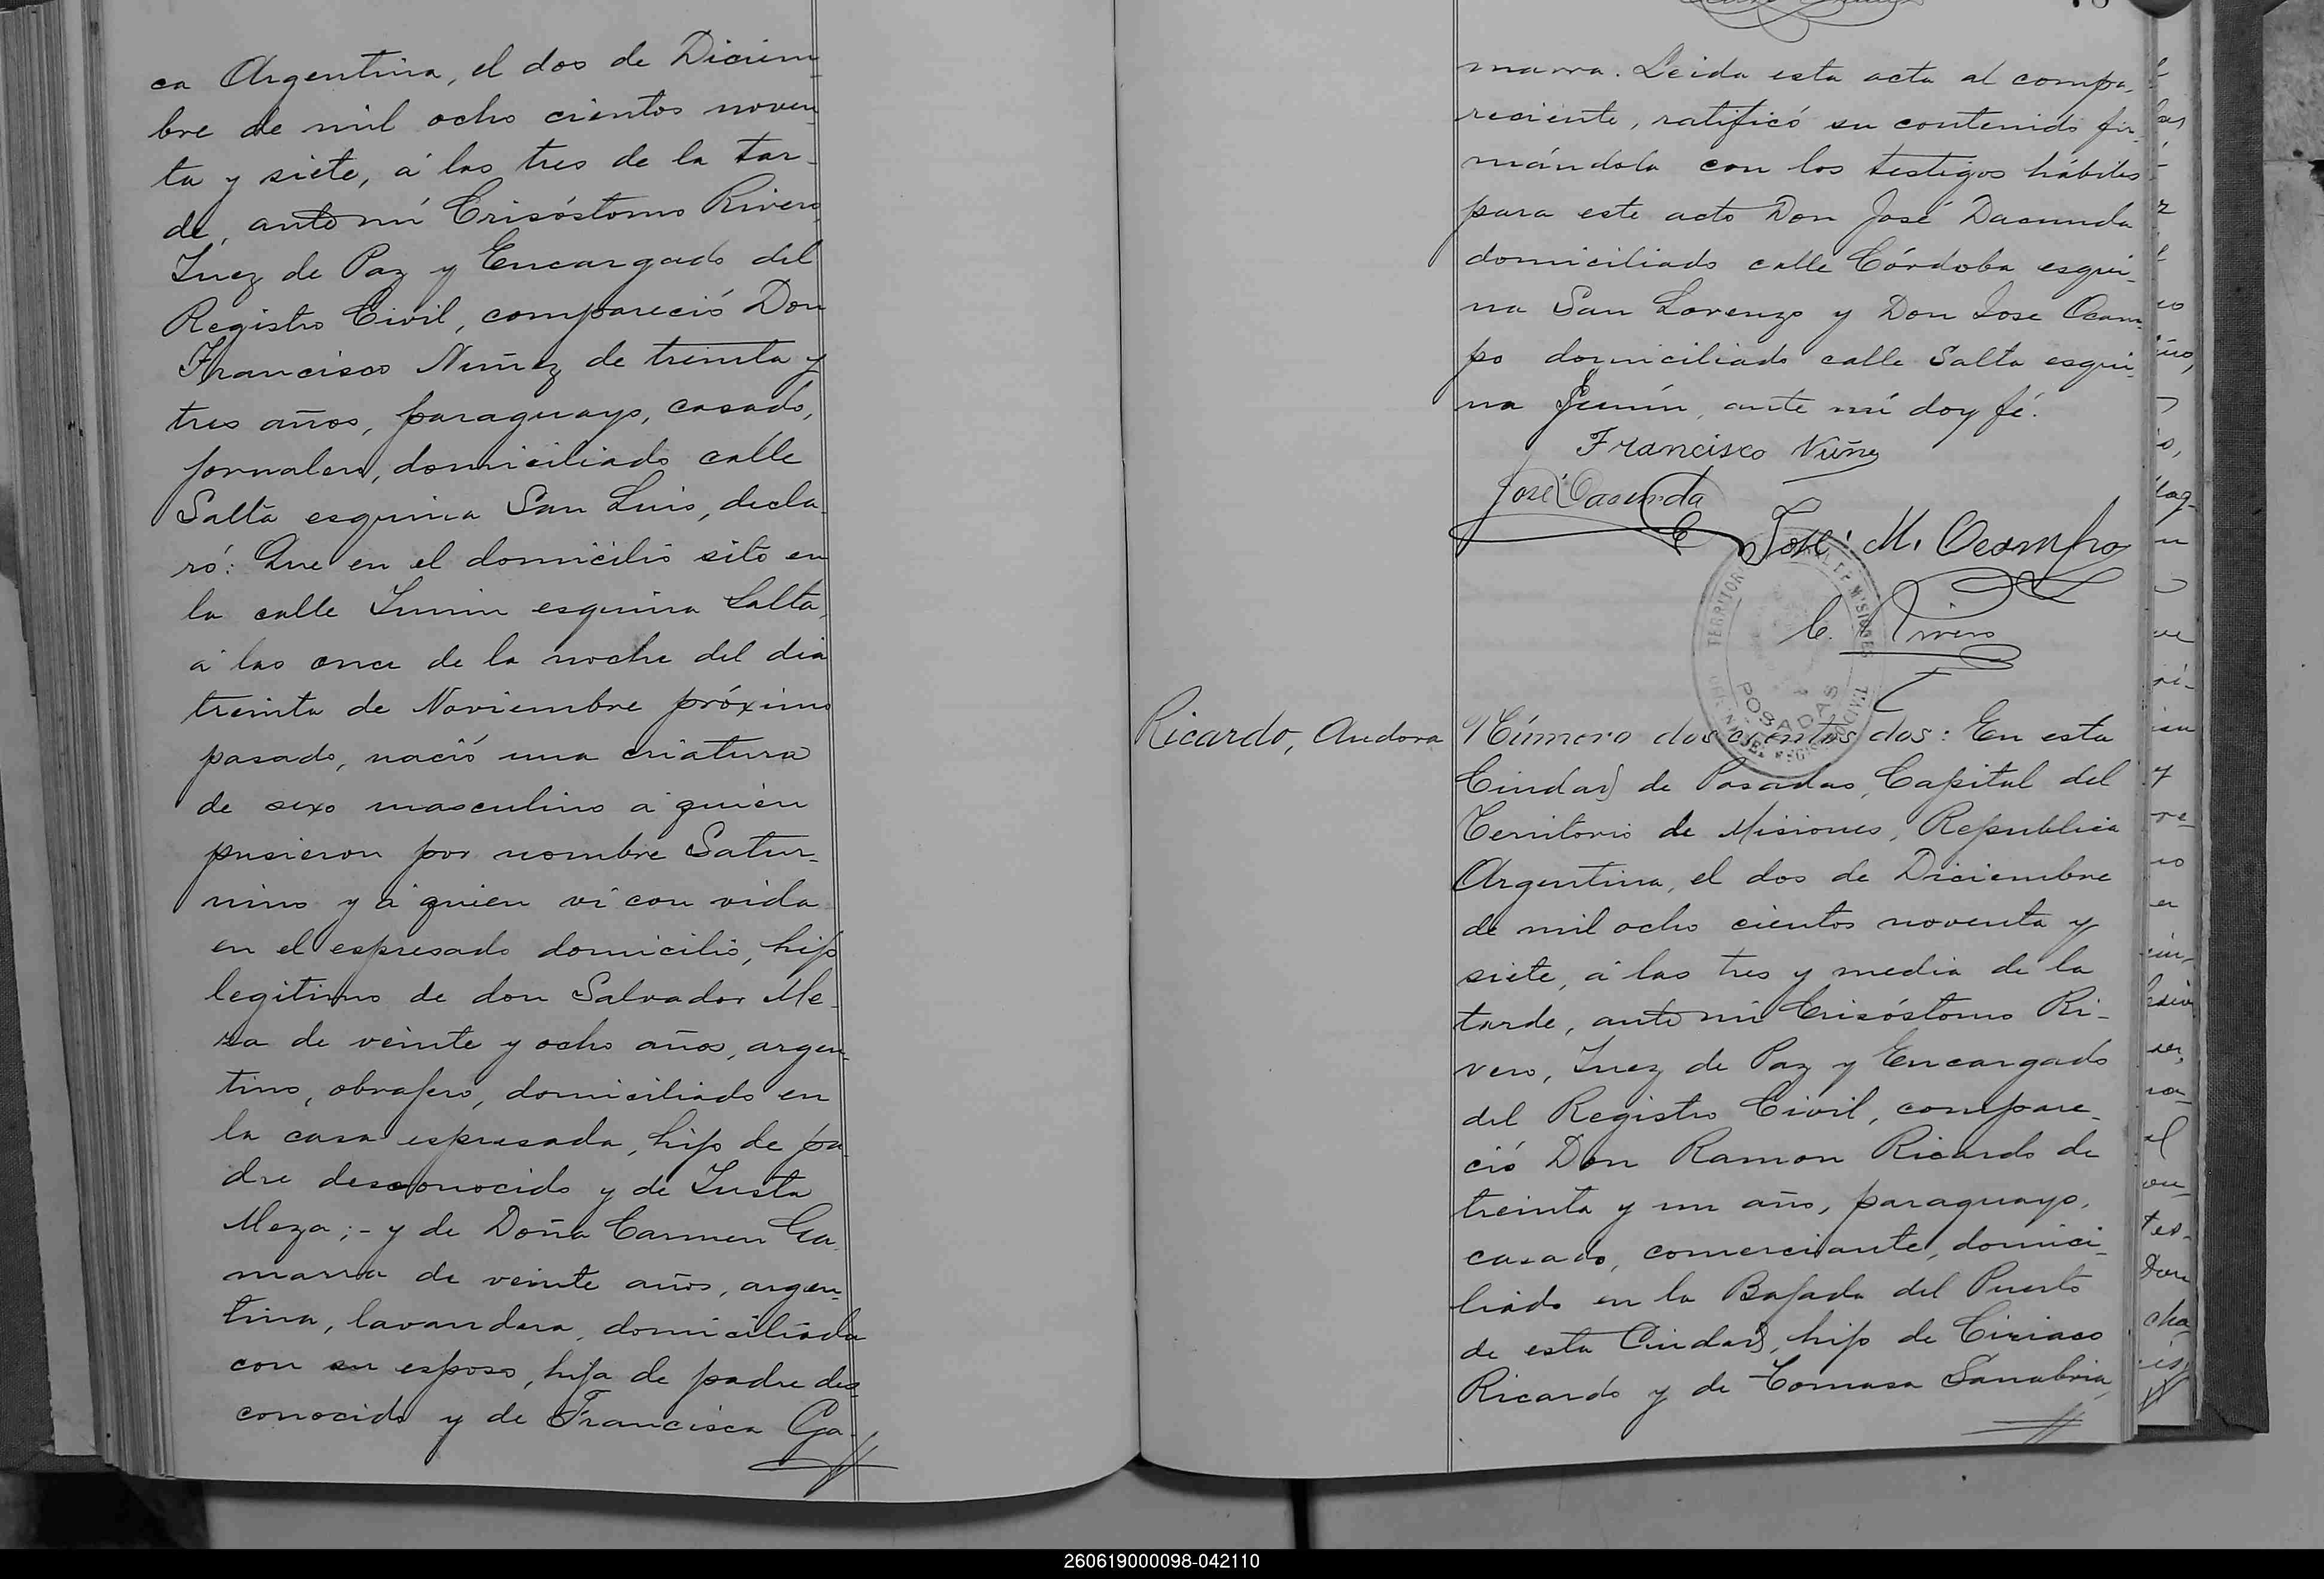 ca Argentina, el dos de Diciem
bre de mil ocho cientos noven
ta y siete, á las tres de la tar-
de, ante mí Crisóstomo Rivero,
Juez de Paz y Encargado del
Registro Civil, compareció Don
Francisco Nuñez de treinta y
tres años, paraguayo, casado,
jornalero, domiciliado calle
Salta esquina San Luis, decla-
ró: Que en el domicilio sito en
la calle Junin esquina Salta,
á las once de la noche del dia
treinta de Noviembre próximo
pasado, nació una criatura
de sexo masculino á quien
pusieron por nombre Satur-
nino y á quien ví con vida
en el espresado domicilio, hijo
legitimo de don Salvador Me-
za de veinte y ocho años, argen-
tino, obrajero, domiciliado en
la casa espresada, hijo de pa-
dre desconocido y de Justa
Meza;- y de Doña Carmen Ga-
marra de veinte años, argen-
tina, lavandera, domiciliada
con su esposo, hija de padre des
conocido y de Francisca Ga-
marra. Leida esta acta al compa-
reciente, ratificó su contenido fir-
mándola con los testigos hábiles
para este acto Don José Dacunda
domiciliado calle Córdoba esqui-
na San Lorenzo y Don Jose Ocam-
po domiciliado calle Salta esqui-
na Junín, ante mí doy fé.
Francisco Nuñez
José Dacunda
José M. Ocampo
C. Rivero
TERRITORIO DE MISIONES
POSADAS
REGISTRO CIVIL
Ricardo, Andora
Número dos cientos dos: En esta
Ciudad de Posadas, Capital del
Territorio de Misiones, Republica
Argentina, el dos de Diciembre
de mil ocho cientos noventa y
siete, á las tres y media de la
tarde, ante mí Crisóstomo Ri-
vero, Juez de Paz y Encargado
del Registro Civil, compare-
ció Don Ramon Ricardo de
treinta y un año, paraguayo,
casado, comerciante, domici-
liado en la Bajada del Puerto
de esta Ciudad, hijo de Ciriaco
Ricardo y de Tomasa Sanabria,
260619000098-042110